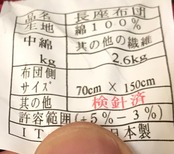 品名 長座布団
生地 綿100%
中綿 其の他の繊維
kg 2.6kg
布団側
サイズ 70cm × 150cm
其の他 検針済
許容範囲(+5%－3%)
IT 日本製